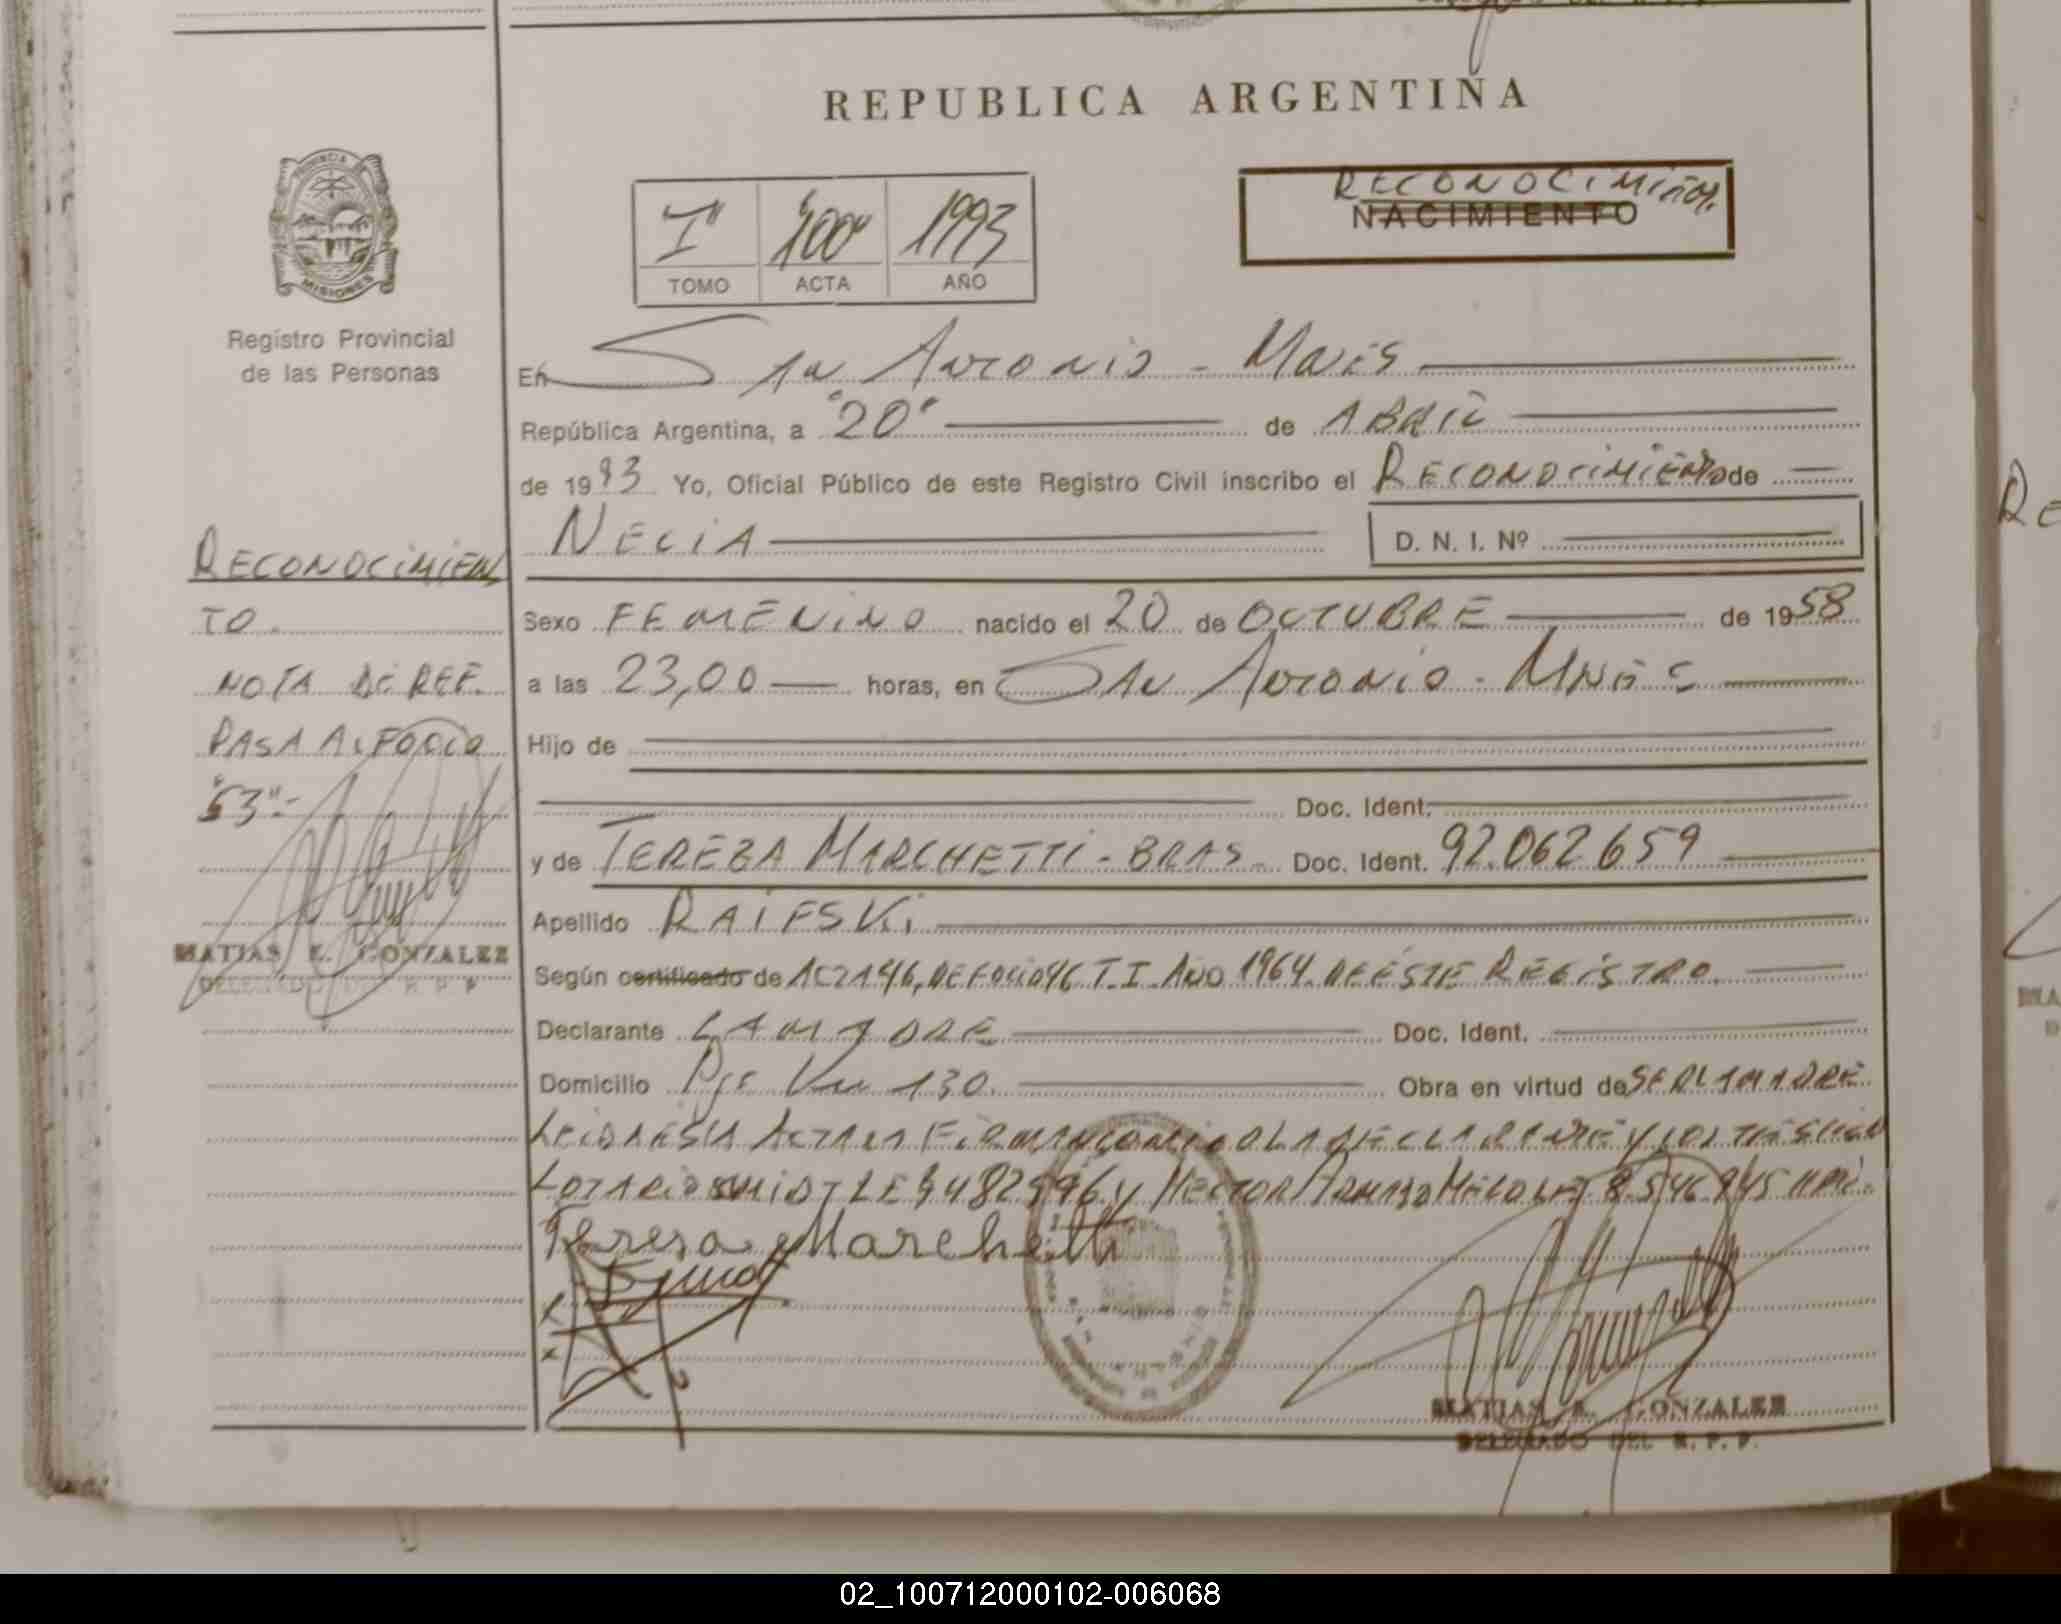 REPUBLICA ARGENTINA
PROVINCIA
MISIONES
Registro Provincial
de las Personas
I"
"100"
1993
TOMO
ACTA
AÑO
RECONOCIMIENTO.
NACIMIENTO
En SAN ANTONIO - MNES
República Argentina, a "20" de ABRIL
de 1993 Yo, Oficial Público de este Registro Civil inscribo el RECONOCIMIENTO de
NELIA D. N. I. Nº
RECONOCIMIEN
TO.
NOTA DE REF.
PASA AL FOLIO
"53"-
MATIAS E. GONZALEZ
DELEGADO DEL R. P. P.
Sexo FEMENINO nacido el 20 de OCTUBRE de 1958
a las 23,00 horas, en SAN ANTONIO - MNES
Hijo de
Doc. Ident.
y de TEREZA MARCHETTI - BRAS - Doc. Ident. 92.062659
Apellido RAIFSKI
Según certificado de ACTA 46, DE FOLIO 46 T. I. AÑO 1964. DE ESTE REGISTRO.
Declarante LA MADRE Doc. Ident.
Domicilio Pje 130 Obra en virtud de SER LA MADRE
LEIDA ESTA ACTA LA FIRMAN CONMIGO LA DECLARANTE Y LOS
Y HECTOR
Teresa Marchetti
MATIAS E. GONZALEZ
DELEGADO DEL R. P. P.
RE
02_100712000102-006068